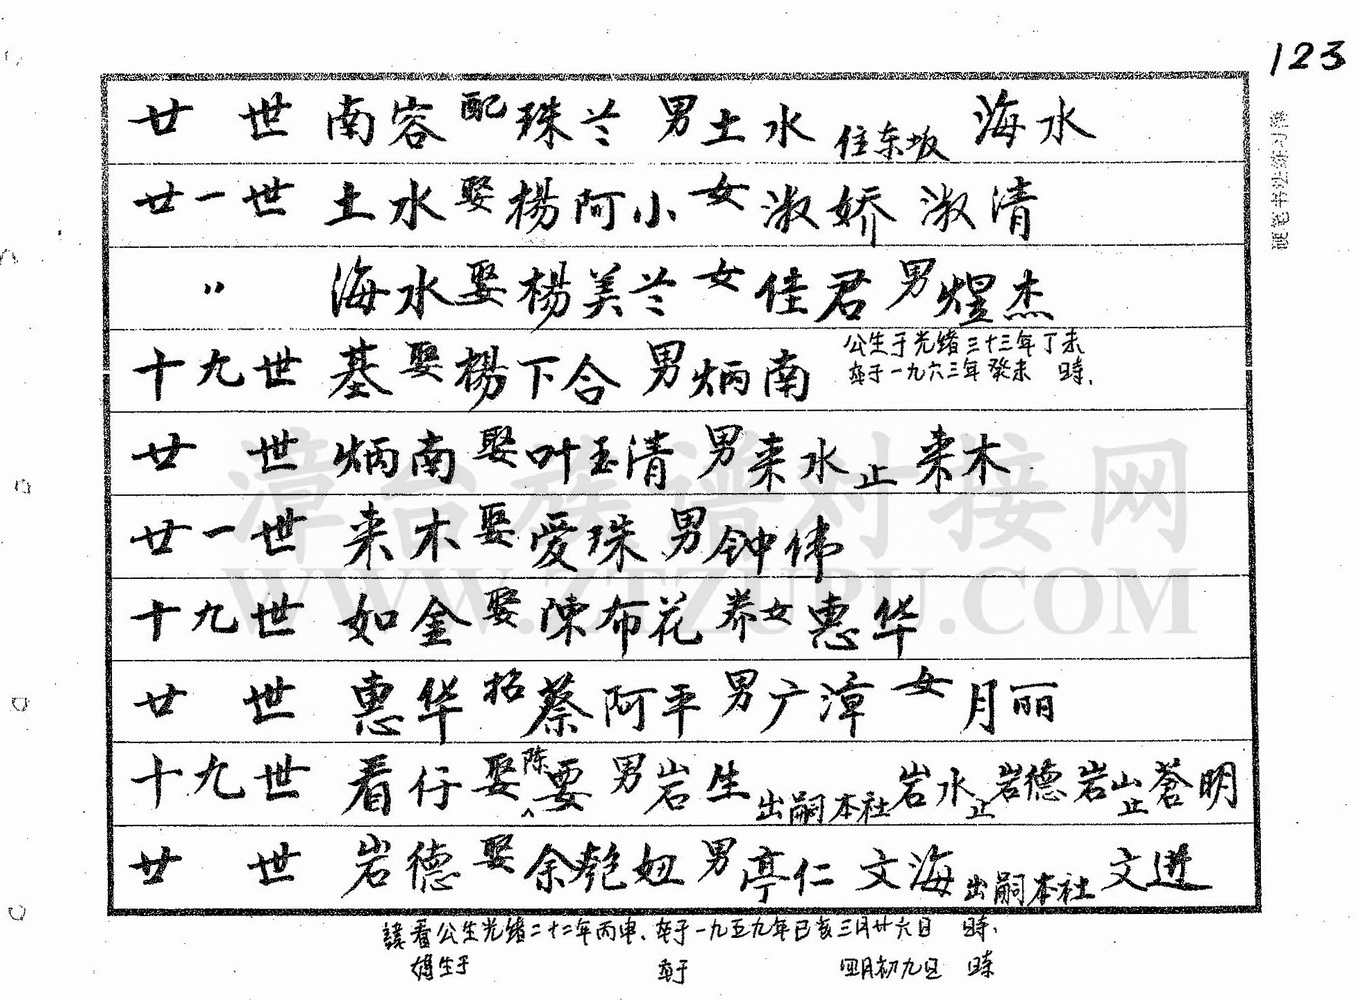 123
硬笔书法练习簿
廿世 南容 配 珠兰 男 土水 住东坂 海水
廿一世 土水 娶 楊阿小 女 淑娇 淑清
〃 海水 娶 楊美兰 女 佳君 男 煜杰
十九世 基 娶 楊下合 男 炳南 公生于光绪三十三年丁未
卒于一九六三年癸未 時、
廿世 炳南 娶 叶玉清 男 来水 止 来木
廿一世 来木 娶 愛珠 男 钟伟
十九世 如金 娶 陳布花 养女 惠华
廿世 惠华 招 蔡阿平 男 广漳 女 月丽
十九世 看仔 娶 陈要 男 岩生 出嗣本社 岩水 止 岩德 岩山 止 蒼明
廿世 岩德 娶 余 妞 男 亭仁 文海 出嗣本社 文进
諱看公生光绪二十二年丙申、卒于一九五九年已亥三月廿六日 時、
媽生于 卒于 四月初九日 時
漳台族谱对接网
WWW.ZTZUPU.COM